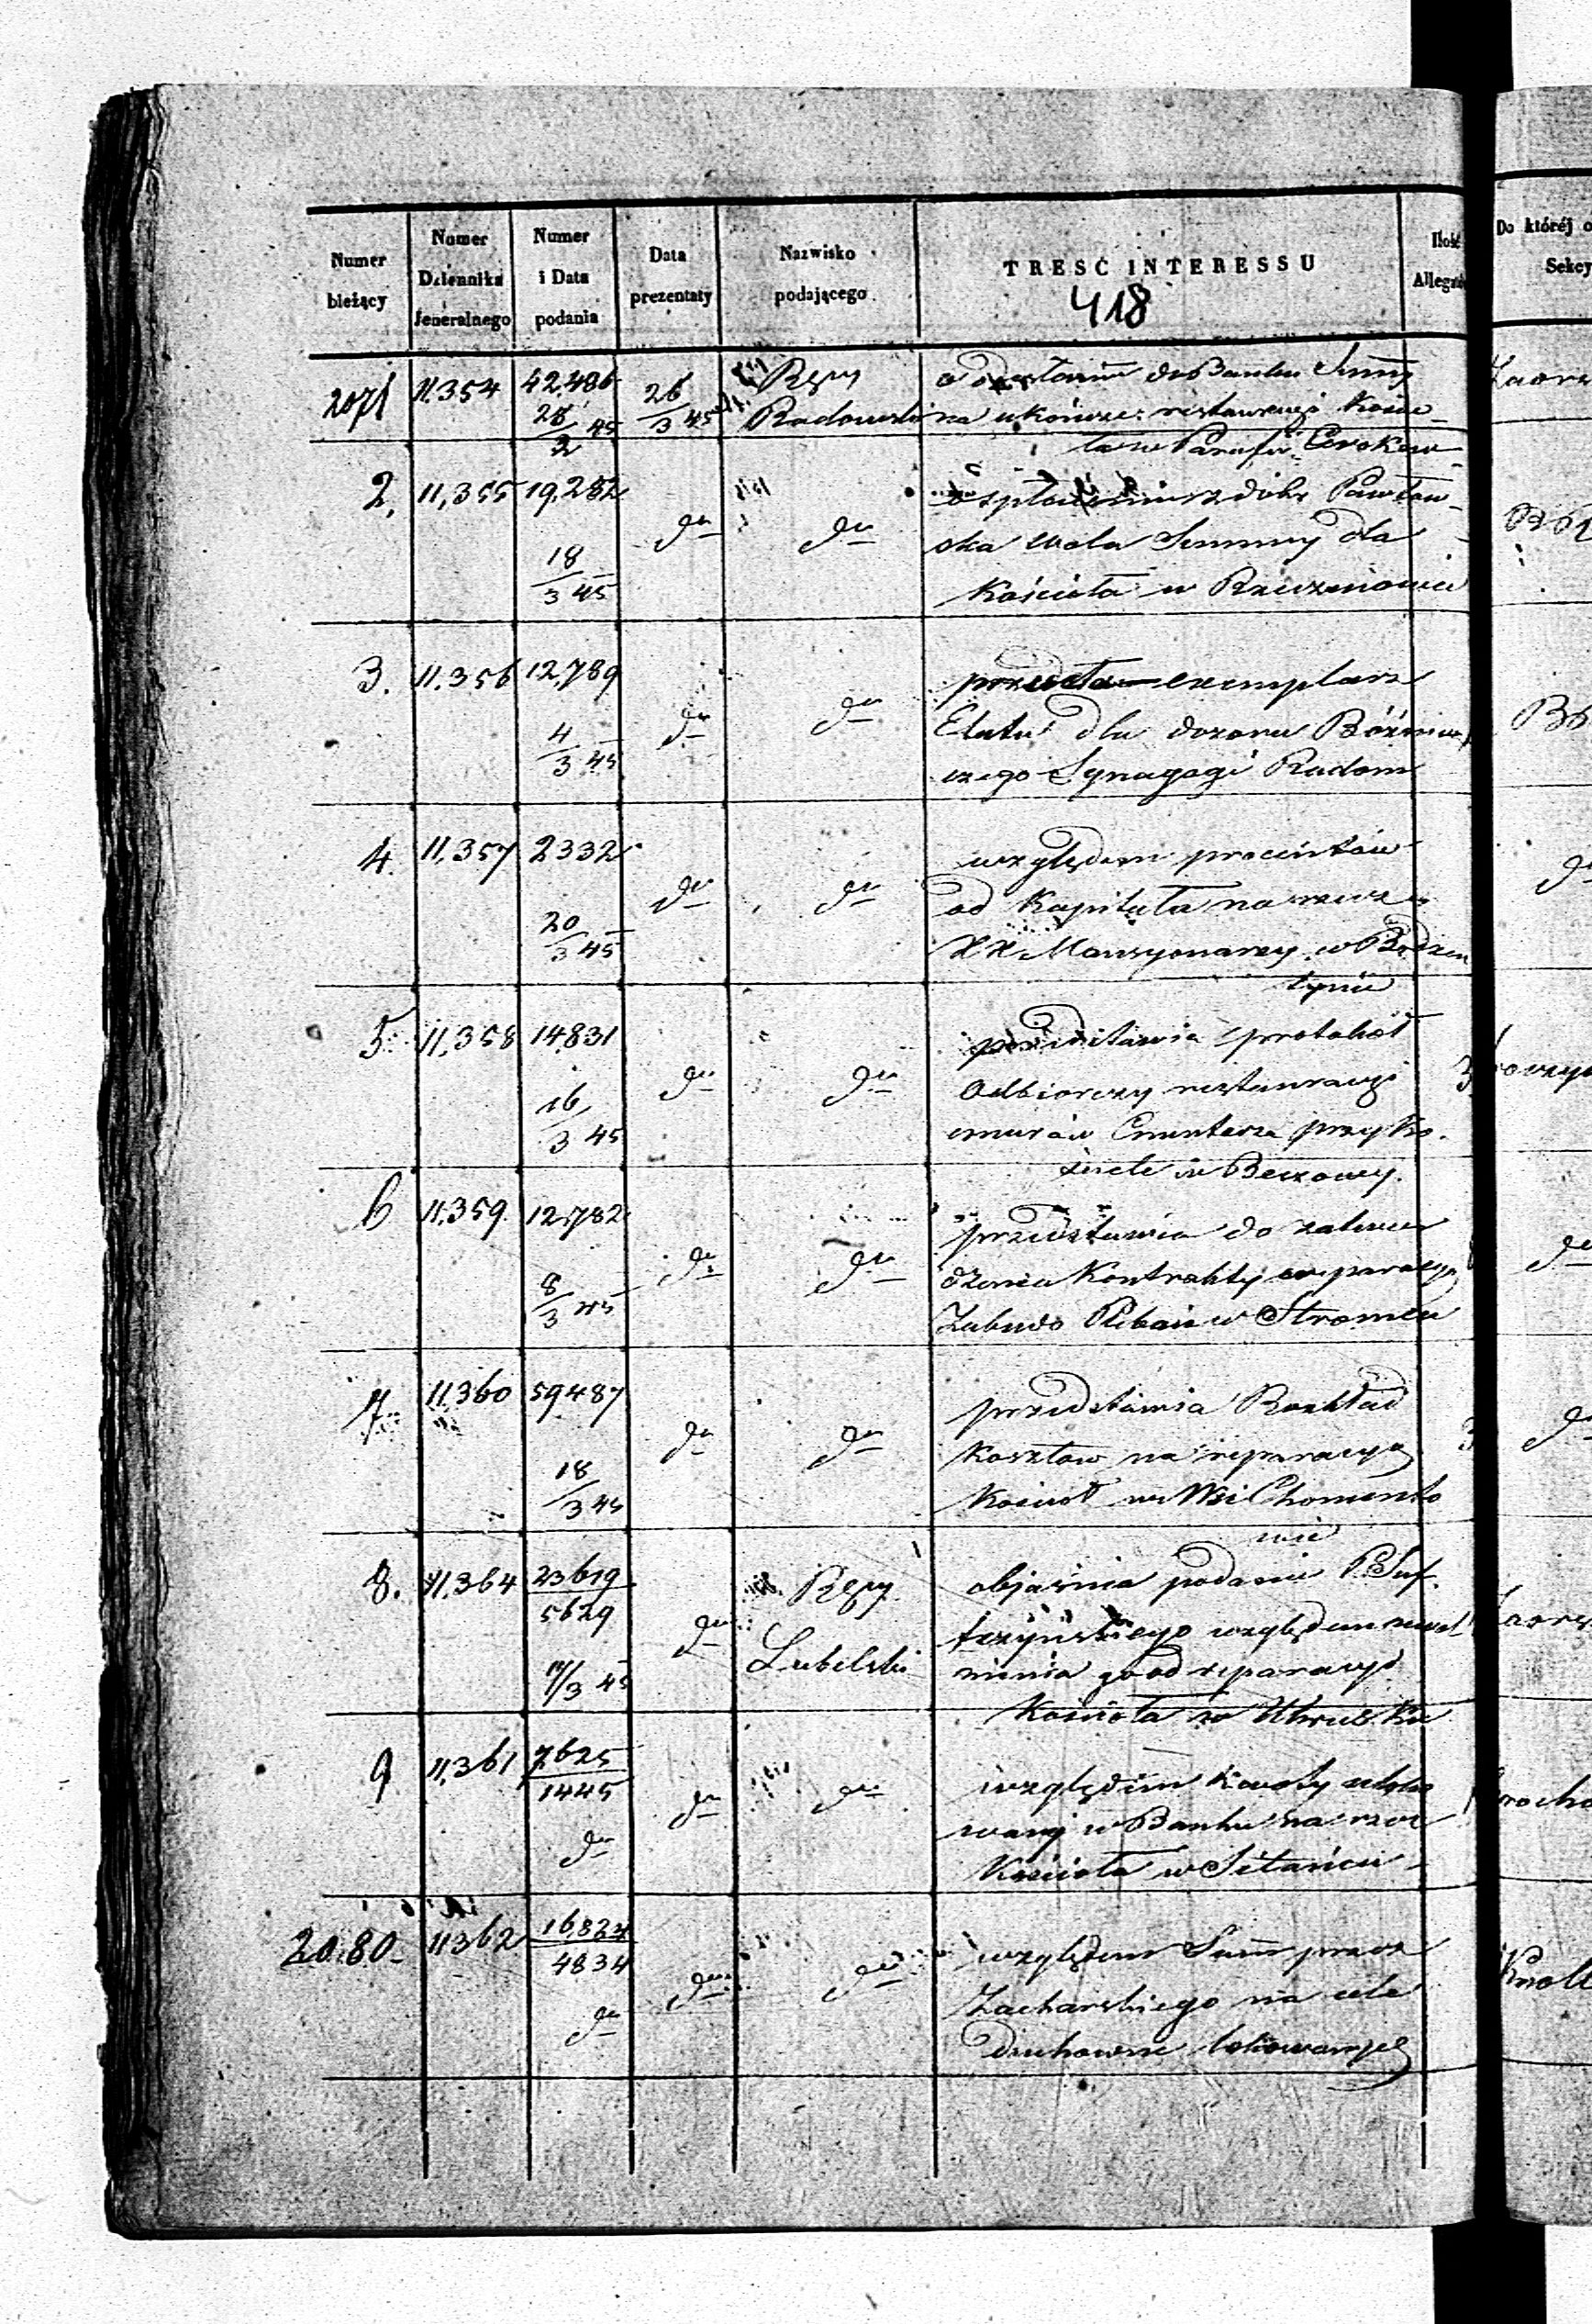 Numer bieżący
Numer Dziennika Jeneralnego
Numer i Data podania
Data prezentaty
Nazwisko podającego
TRESC INTERESSU
418
Do któréj
2071 11.354 42,486 28/2 45 26/3 45 Rządy Radomski
o odesłaniu do Banku Summy
na ukończe: restauracyi Kościo-
ła w Parafii Cerekew
2. 11,355 19,282 18/3 45 do do
o spłaceniu z dóbr Pawłow-
ska Wola Summy dla
Kościoła w Rzeczniowie
3. 11.356 12,789 4/3 45 do do
przesyła exemplarz
Etatu dla dozoru Bóżni-
czego Synagogi Radom
4. 11,357 2332 20/3 45 do do
względem procentów
od Kapitału na rzecz
XX Mansyonarzy w Bodzen
tynie
5. 11,358 14831 16/3 45 do do
przedstawia protokół
Odbiorczy restauracyi
murów Cmentarza przy Ko-
ściele w Beszowy.
6 11,359 12,782 8/3 45 do do
przedstawia do zatwier
dzenia Kontrakty reparacyi
Zabudo Pleban w Stromcu
7. 11,360 59487 18/3 45 do do
przedstawia Rozkład
Kosztów na reparacyę
Kościoł we Wsi Chomento
wie
8. 11,364 23619 5629 /3 45 do Rządy Lubelski
objaśnia podanie P
względem uwol
nienia go od reparacyi
Kościoła w
9 11,361 7625 1445 do do do
względem Kwoty uloko
wanej w Banku na rzecz
Kościoła w Sitańcu
20.80. 11362 16,824 4834 do do do
względem Summ przez
Zacharskiego na cele
duchowne lokowanych